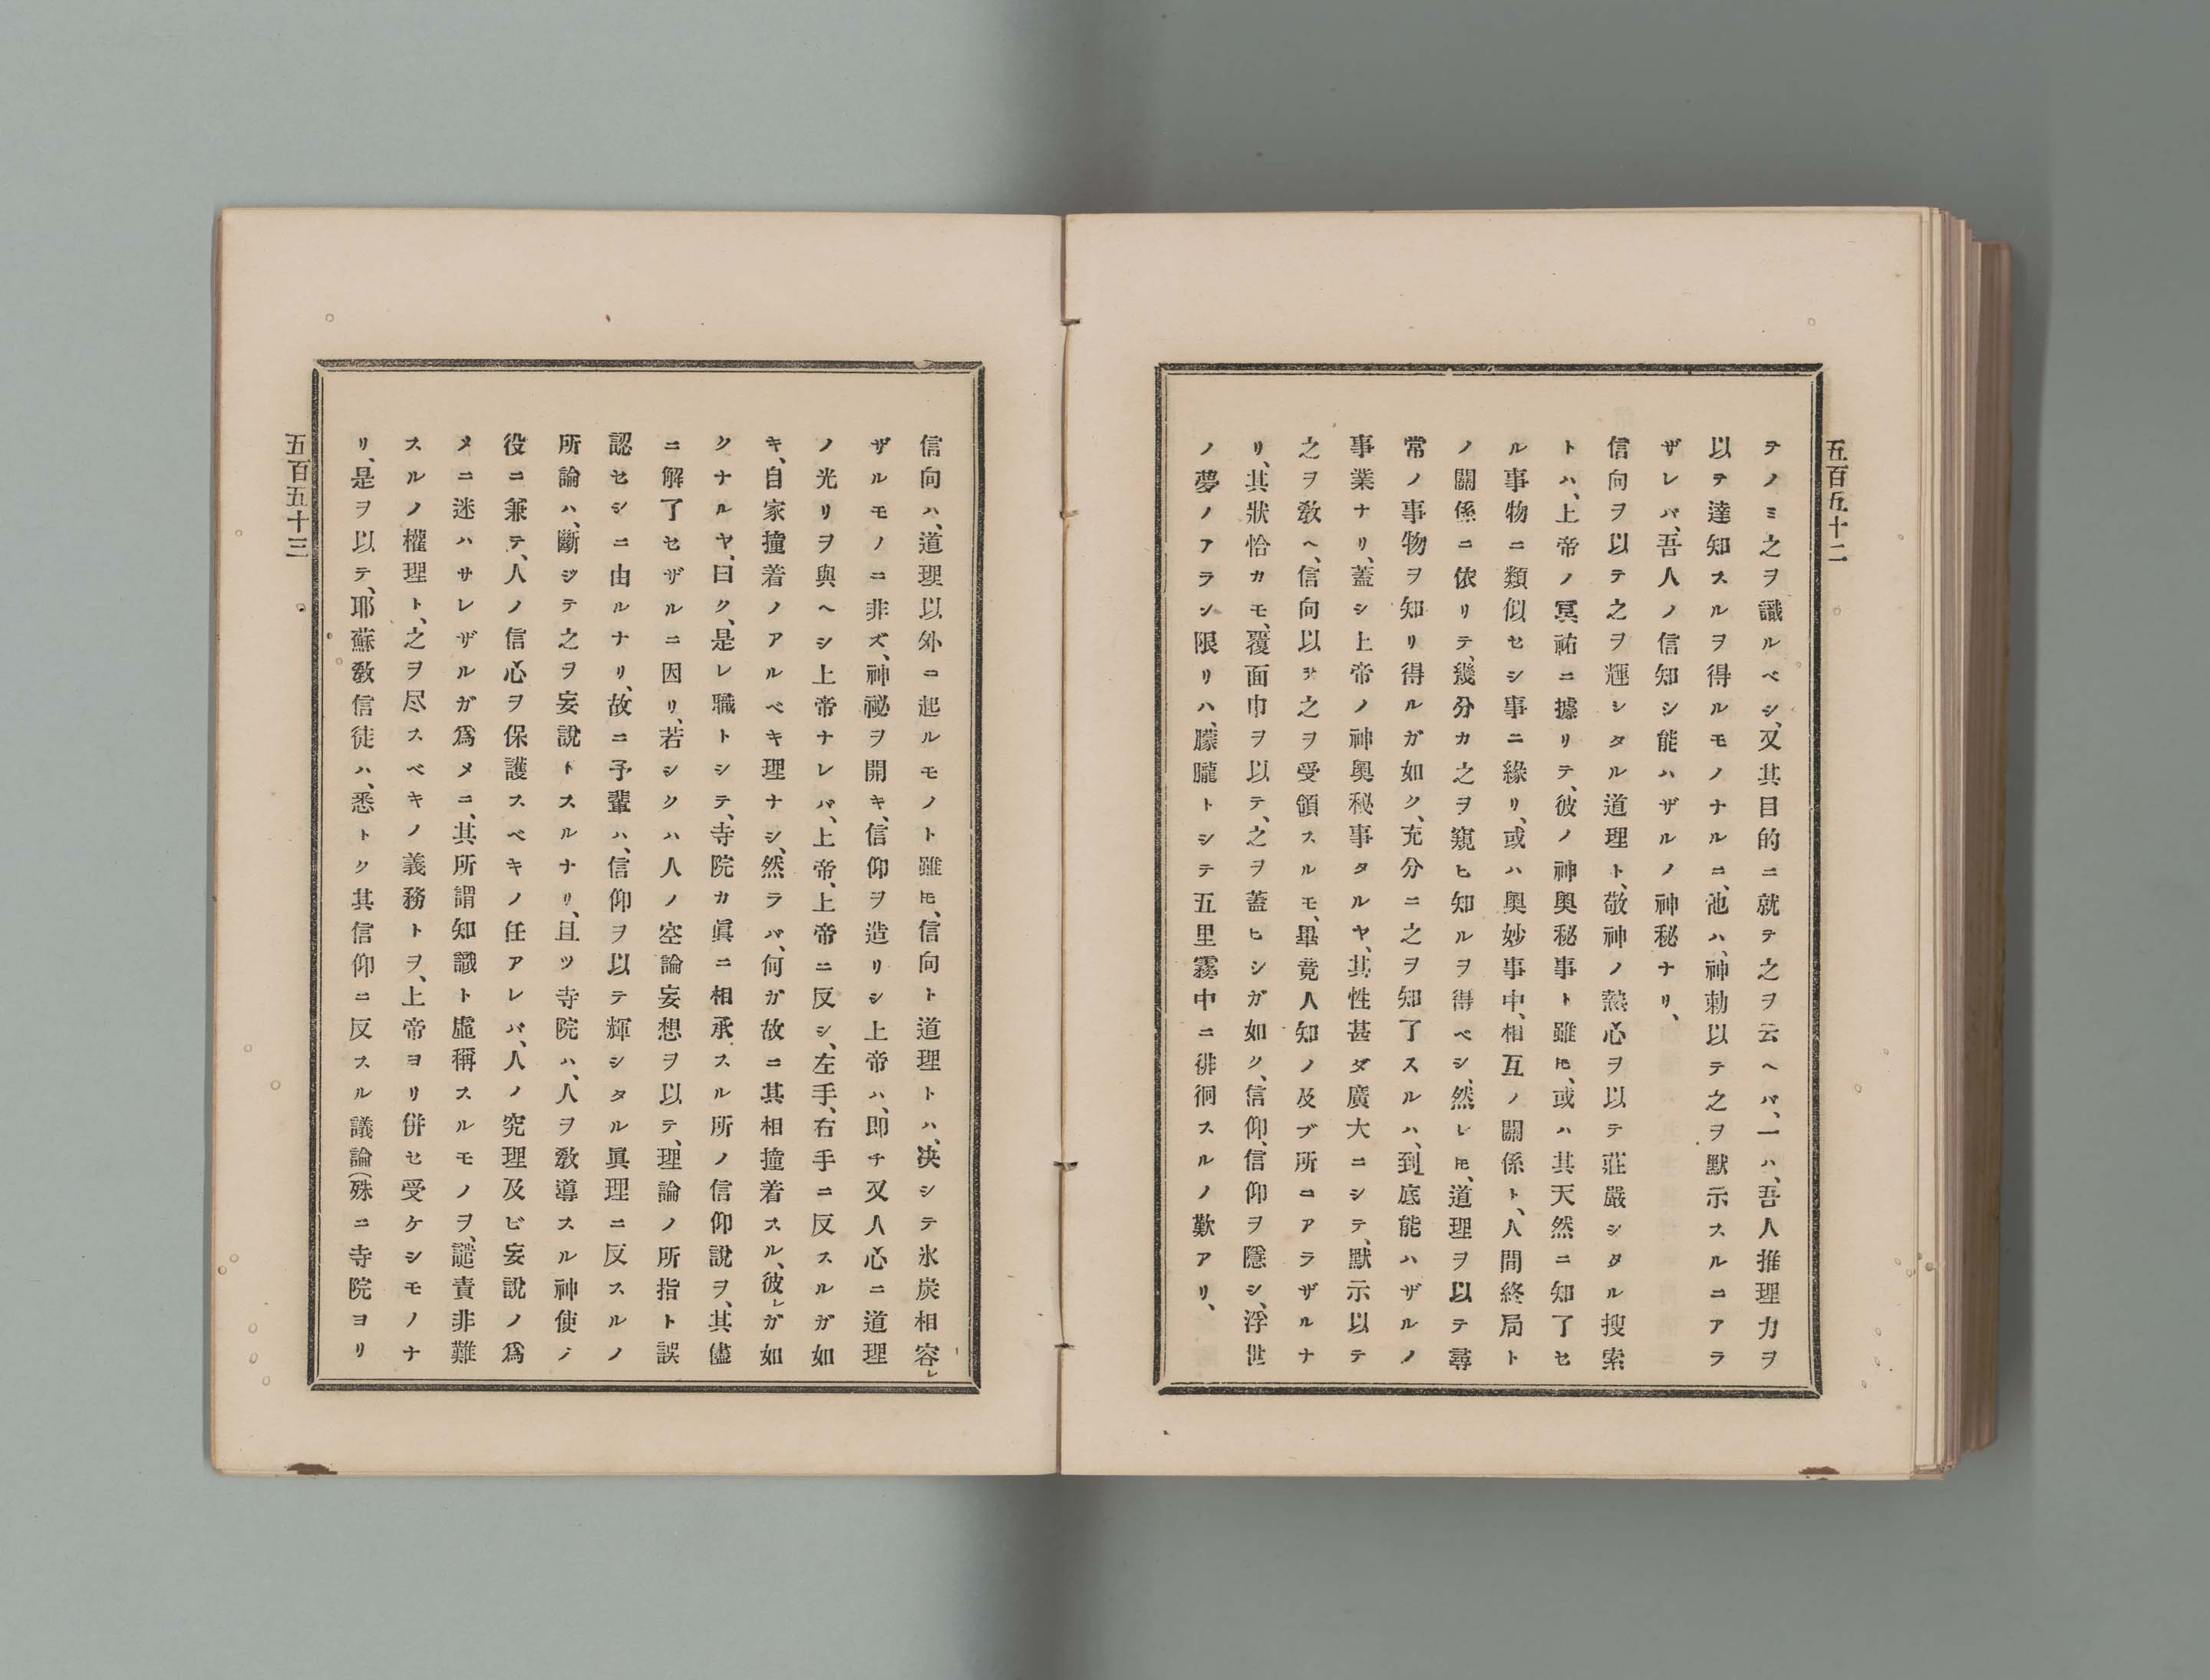 五百五十二
テノミ之ヲ識ルベシ、又其目的ニ就テ之ヲ云ヘバ、一ハ、吾人推理力ヲ
以テ達知スルヲ得ルモノナルニ、他ハ、神勅以テ之ヲ默示スルニアラ
ザレバ、吾人ノ信知シ能ハザルノ神秘ナリ、
信向ヲ以テ之ヲ輝シタル道理ト、敬神ノ熱心ヲ以テ莊嚴シタル搜索
トハ、上帝ノ冥祐ニ據リテ、彼ノ神奧秘事ト雖𪜈、或ハ其天然ニ知了セ
ル事物ニ類似セシ事ニ緣リ、或ハ奧妙事中、相互ノ關係ト、人間終局ト
ノ關係ニ依リテ、幾分カ之ヲ窺ヒ知ルヲ得ベシ、然レ𪜈、道理ヲ以テ尋
常ノ事物ヲ知リ得ルガ如ク、充分ニ之ヲ知了スルハ、到底能ハザルノ
事業ナリ、蓋シ上帝ノ神奧秘事タルヤ、其性甚ダ廣大ニシテ、默示以テ
之ヲ敎ヘ、信向以テ之ヲ受領スルモ、畢竟人知ノ及ブ所ニアラザルナ
リ、其狀恰カモ、覆面巾ヲ以テ、之ヲ蓋ヒシガ如ク、信仰、信仰ヲ隱シ、浮世
ノ夢ノアラン限リハ、朦朧トシテ五里霧中ニ徘徊スルノ歎アリ、
信向ハ、道理以外ニ起ルモノト雖𪜈、信向ト道理トハ、決シテ氷炭相容レ
ザルモノニ非ズ、神祕ヲ開キ、信仰ヲ造リシ上帝ハ、即チ又人心ニ道理
ノ光リヲ與ヘシ上帝ナレバ、上帝、上帝ニ反シ、左手、右手ニ反スルガ如
キ、自家撞着ノアルベキ理ナシ、然ラバ、何ガ故ニ其相撞着スル、彼レガ如
クナルヤ、曰ク、是レ職トシテ、寺院カ眞ニ相承スル所ノ信仰說ヲ、其儘
ニ解了セザルニ因リ、若シクハ人ノ空論妄想ヲ以テ、理論ノ所指ト誤
認セシニ由ルナリ、故ニ予輩ハ、信仰ヲ以テ輝シタル眞理ニ反スルノ
所論ハ、斷ジテ之ヲ妄說トスルナリ、且ツ寺院ハ、人ヲ敎導スル神使ノ
役ニ兼テ、人ノ信心ヲ保護スベキノ任アレバ、人ノ究理及ビ妄說ノ爲
メニ迷ハサレザルガ爲メニ、其所謂知識ト虛稱スルモノヲ、譴責非難
スルノ權理ト、之ヲ尽スベキノ義務トヲ、上帝ヨリ併セ受ケシモノナ
リ、是ヲ以テ、耶蘇敎信徒ハ、悉トク其信仰ニ反スル議論(殊ニ寺院ヨリ
五百五十三